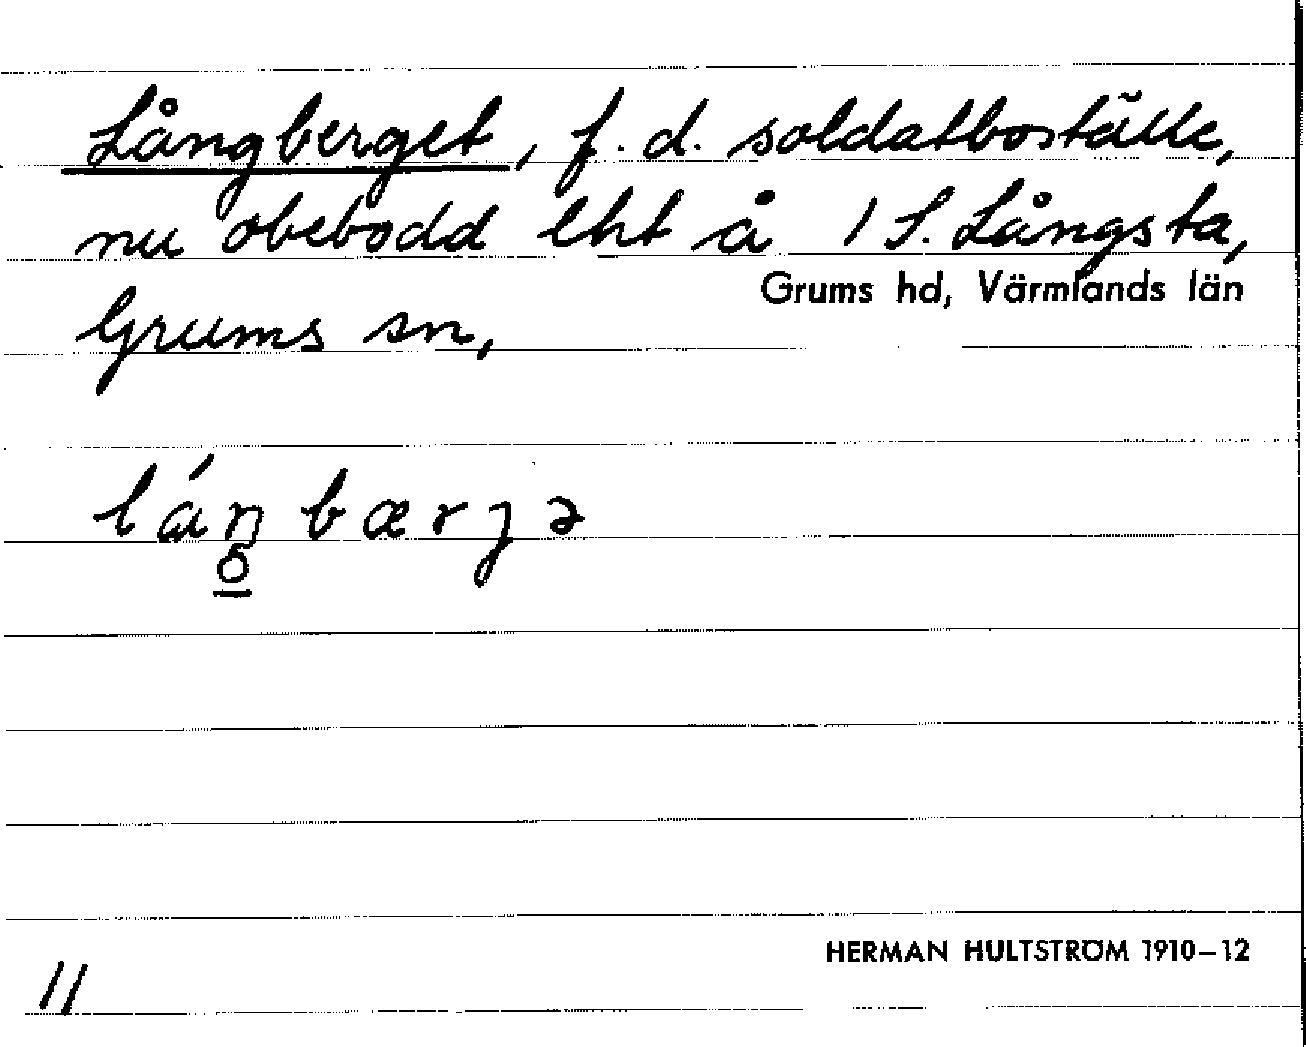 Långberget, f. d. soldatboställe,
nu obebodd lht å 1 S. Långsta,
Grums hd, Värmlands län
Grums sn,
láŋbærjə
o
11
HERMAN HULTSTRÖM 1910–12